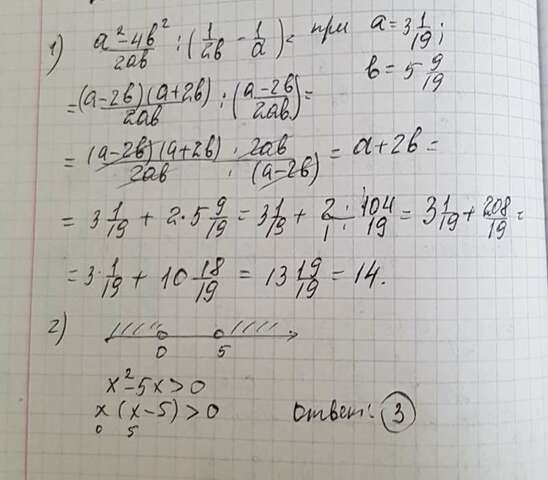 1) (a² - 4b²)/(2ab) : (1/(2b) - 1/a) = при a = 3 1/19;
b = 5 9/19
= ((a-2b)(a+2b))/(2ab) : ((a-2b)/(2ab)) =
= ((a-2b)(a+2b) · 2ab)/(2ab · (a-2b)) = a+2b =
= 3 1/19 + 2·5 9/19 = 3 1/19 + 2/1 · 104/19 = 3 1/19 + 208/19 =
= 3 1/19 + 10 18/19 = 13 19/19 = 14.
2)
0 5
x² - 5x > 0
x (x - 5) > 0 Ответ: 3
0 5